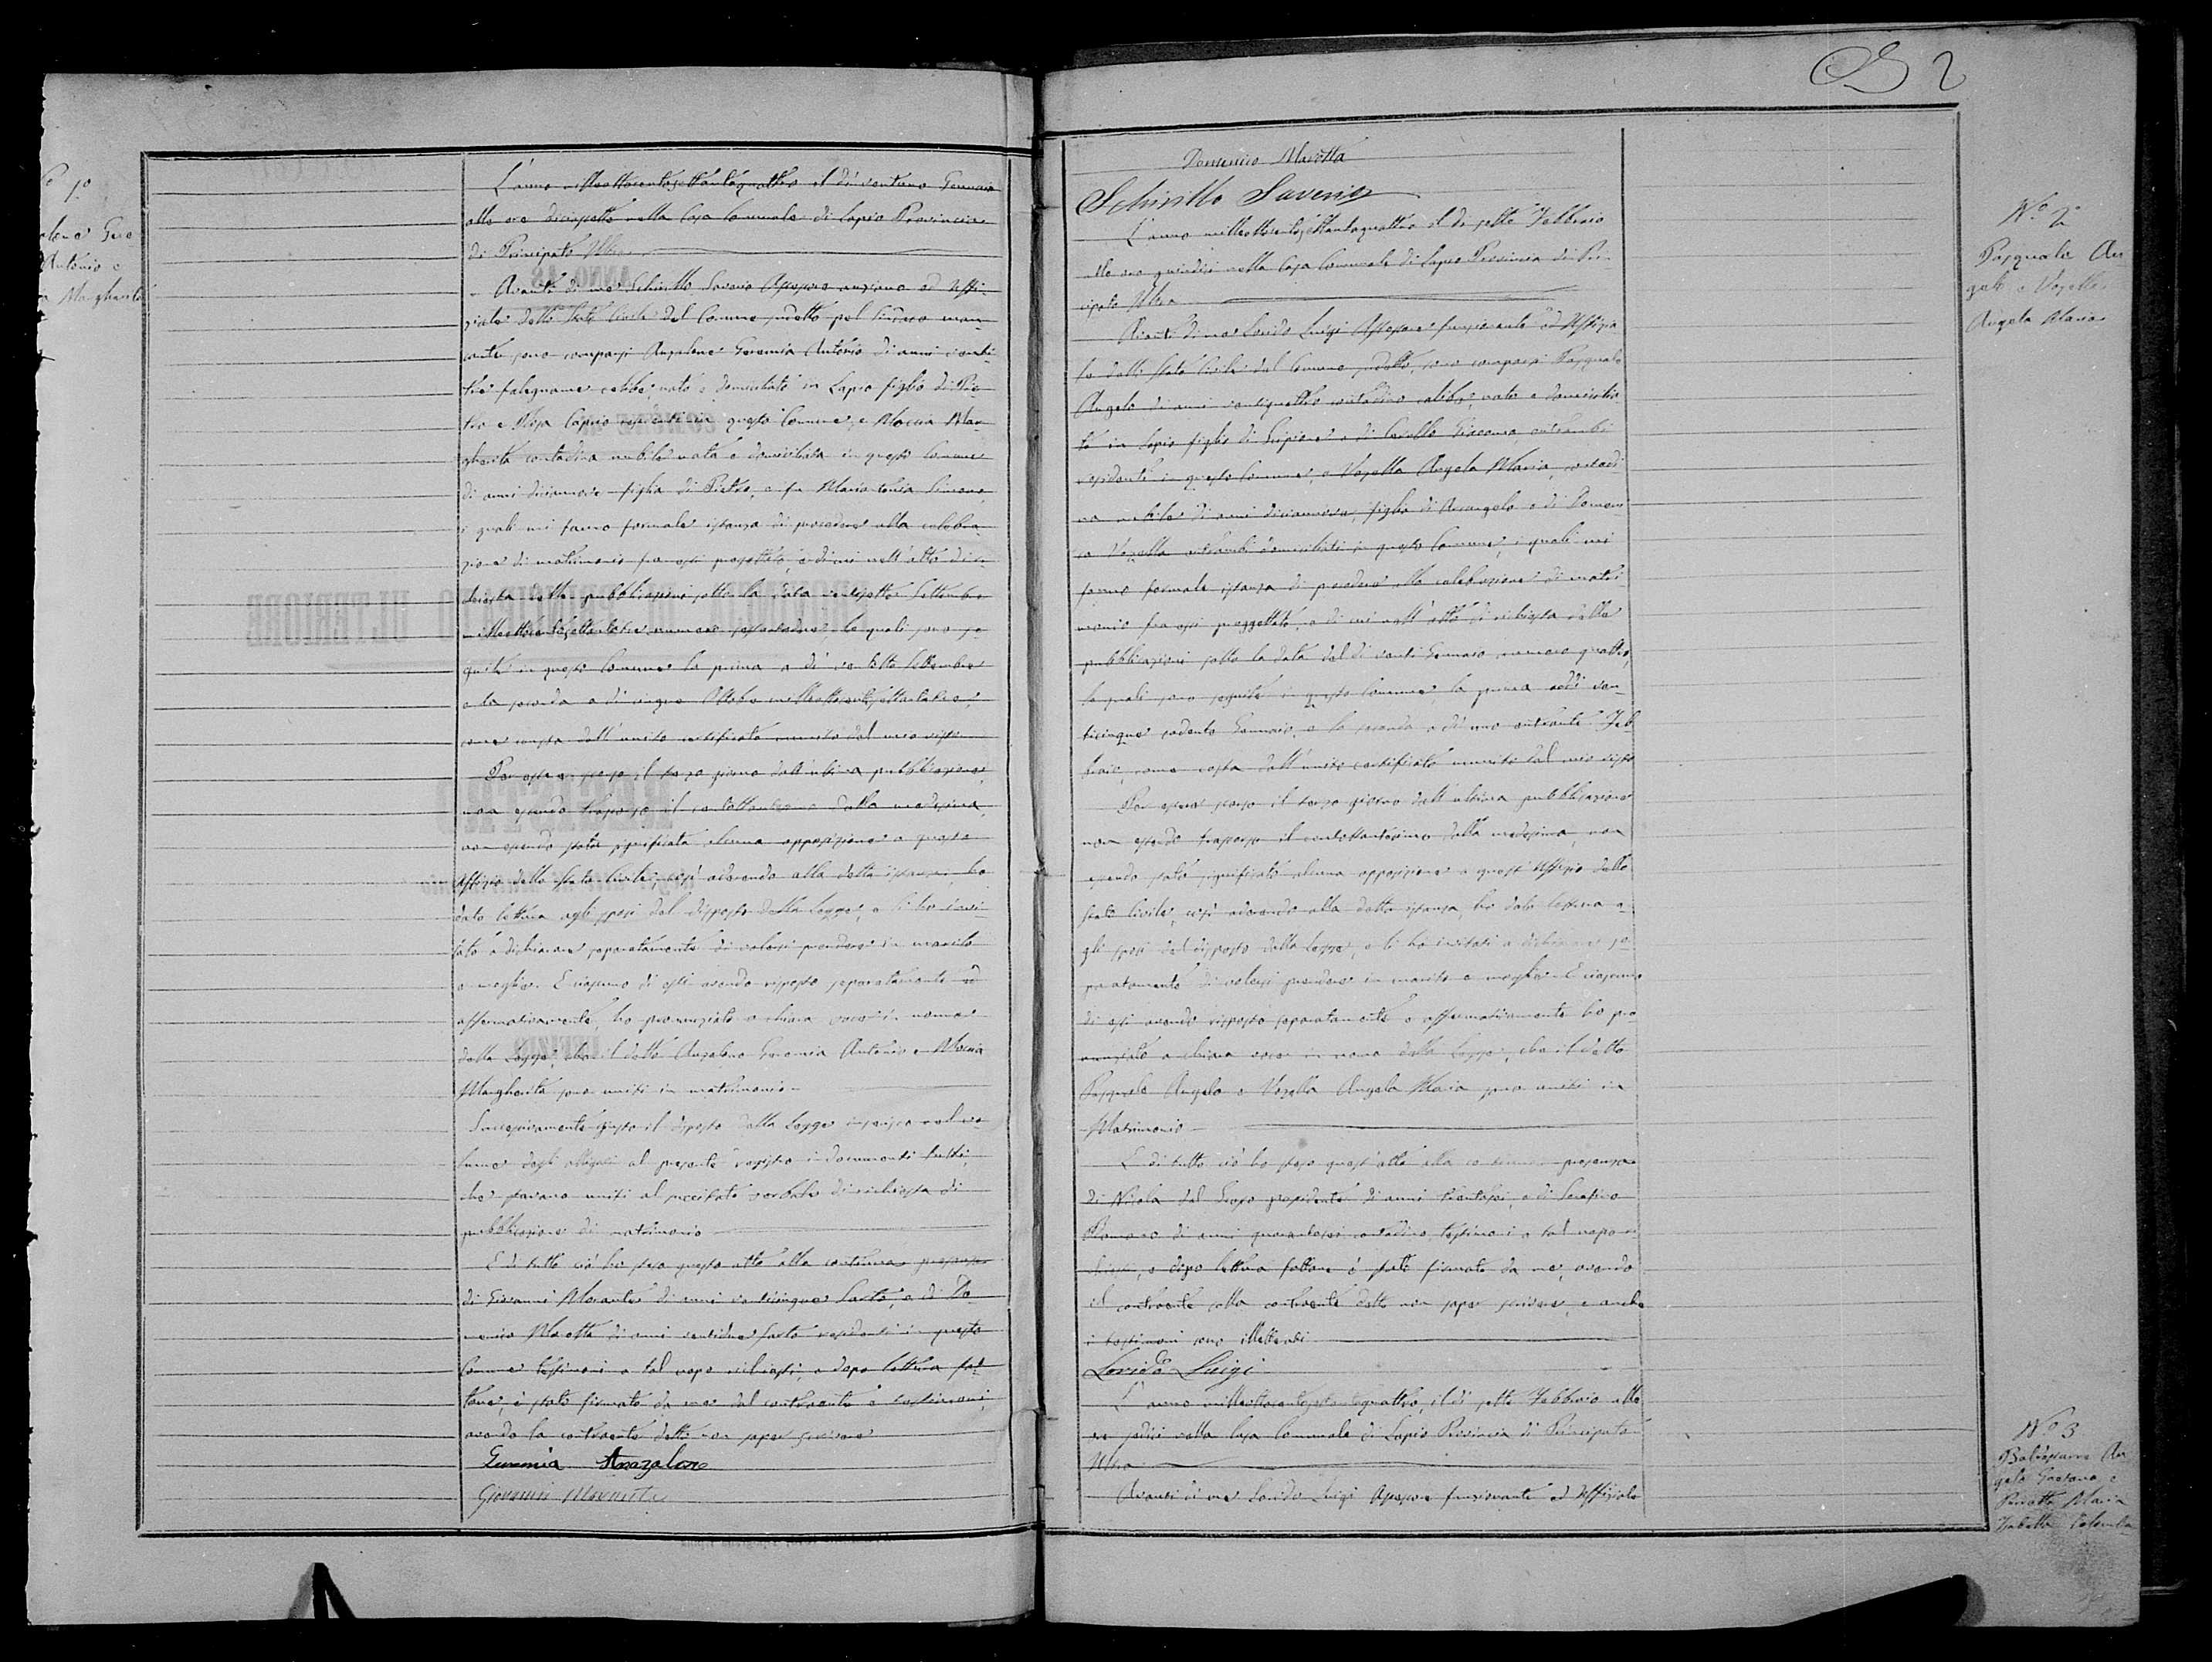 No 1o
Antonio e
Margherita
L'anno milleottocentosettantaquattro il dì ventuno Gennaio
alle ore diciassette nella Casa Comunale di Lapio Provincia
di Principato Ultra
Avanti di me Schirillo Saverio Assessore anziano ed Uffi-
ziale dello Stato Civile del Comune sudetto pel Sindaco man-
cante sono comparsi Anzalone Geremia Antonio di anni venti-
tre falegname celibe, nato e domiciliato in Lapio figlio di Pie-
tro e Rosa Caprio residenti in questo Comune, e Moccia Mar-
gherita contadina nubile nata e domiciliata in questo Comune
di anni diciannove figlia di Pietro, e fu Maria Simeone,
i quali mi fanno formale istanza di procedere alla celebra-
zione di matrimonio fra essi progettato, e di cui nell'atto di ri-
chiesta delle pubblicazioni sotto la data ventisette Settembre
milleottocentosettantatre numero le quali sono se-
guite in questo Comune la prima a dì ventotto Settembre
e la seconda a dì cinque Ottobre milleottocentosettantatre,
come consta dall'unito certificato munito del mio visto
Per essere scorso il terzo giorno dall'ultima pubblicazione,
non essendo trascorso il centottantesimo dalla medesima,
non essendo stata significata alcuna opposizione a questo
Uffizio dello Stato Civile, così aderendo alla detta istanza, ho
dato lettura agli sposi del disposto della Legge, e li ho invi-
tato a dichiarare separatamente di volersi prendere in marito
e moglie. E ciascuno di essi avendo risposto separatamente ed
affermativamente, ho pronunziato a chiara voce in nome
della Legge, che il detto Anzalone Geremia Antonio e Moccia
Margherita sono uniti in matrimonio
Successivamente giusto il disposto della Legge inserisco nel vo-
lume degli allegati al presente registro i documenti tutti,
che stavano uniti al precitato verbale di richiesta di
pubblicazione di matrimonio
E di tutto ciò ho steso questo atto alla continua presenza
di Giovanni Morante di anni venticinque Sarto, e di Do-
menico Marotta di anni ventidue Sarto residenti in questo
Comune testimoni a tal uopo richiesti, e dopo lettura fat-
tane, è stato firmato da me dal contraente e testimoni,
avendo la contraente detto non saper scrivere
Geremia Anzalone
Giovanni Morante
2
Domenico Marotta
Schirillo Saverio
L'anno milleottocentosettantaquattro il dì sette Febbraio
alle ore quindici nella Casa Comunale di Lapio Provincia di Prin-
cipato Ultra
Avanti di me Lorido Luigi Assessore funzionante ed Uffizia-
le dello Stato Civile del Comune sudetto, sono comparsi Pasquale
Angelo di anni ventiquattro contadino celibe, nato e domicilia-
to in Lapio figlio di Scipione e di Carullo entrambi
residenti in questo Comune, e Vozella Angela Maria, contadi-
na nubile di anni diciannove, figlia di Arcangelo e di Domeni-
ca Vozella entrambi domiciliati in questo Comune, i quali mi
fanno formale istanza di procedere alla celebrazione di matri-
monio fra essi progettato, e di cui nell'atto di richiesta delle
pubblicazioni sotto la data del dì venti Gennaro numero quattro,
le quali sono seguite in questo Comune la prima addì ven-
ticinque cadente Gennaio, e la seconda a dì uno entrante Feb-
braio, come costa dall'unito certificato munito del mio visto
Per essere scorso il terzo giorno dall'ultima pubblicazione
non essendo trascorso il centottantesimo dalla medesima, non
essendo stata significata alcuna opposizione a quest'Uffizio dello
Stato Civile, così aderendo alla detta istanza, ho dato lettura a-
gli sposi del disposto della legge, e li ho invitati a dichiarare se-
paratamente di volersi prendere in marito e moglie. E ciascuno
di essi avendo risposto separatamente e affermativamente ho pro-
nunziato a chiara voce in nome della Legge, che il detto
Pasquale Angelo e Vozella Angela Maria sono uniti in
Matrimonio
E di tutto ciò ho steso quest'atto alla continua presenza
di Nicola del Grosso possidente di anni trentasei, e di Serafino
Romano di anni quarantasei contadino testimoni a tal uopo ri-
chiesti, e dopo lettura fattane è stato firmato da me, avendo
il contraente colla contraente detto non saper scrivere, e anche
i testimoni sono illetterati
Lorido Luigi
L'anno milleottocentosettantaquattro, il dì sette Febbraio alle
ore sedici nella Casa Comunale di Lapio Provincia di Principato
Ultra
Avanti di me Lorido Luigi Assessore funzionante ed Uffiziale
No 2
Pasquale An-
gelo e Vozella
Angela Maria
No 3
An-
gelo Gaetano e
Maria
Isabella Colomba